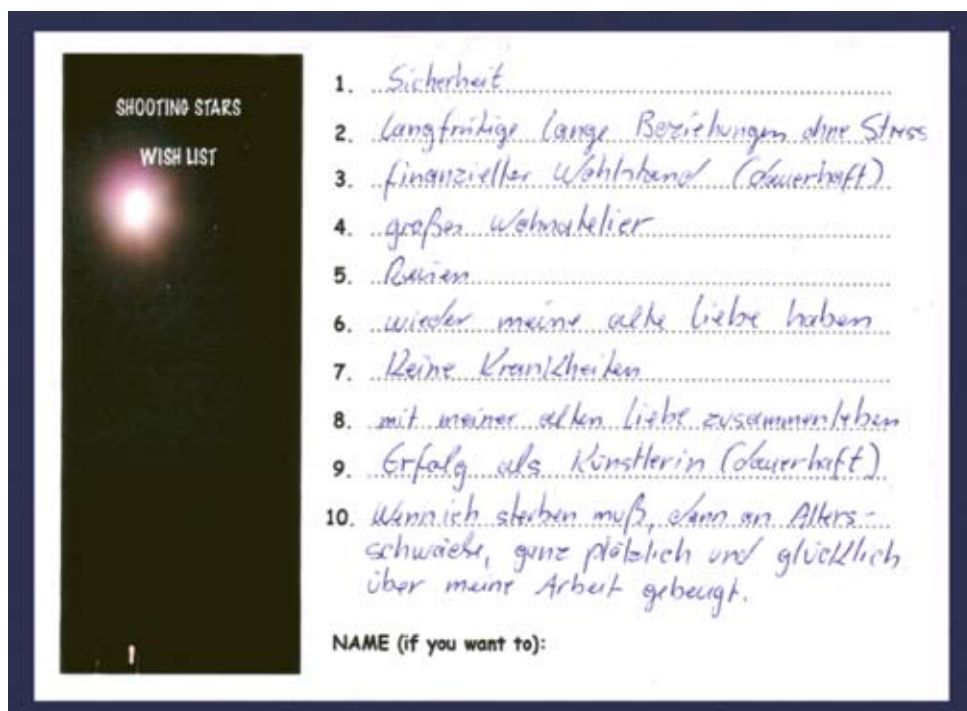 SHOOTING STARS
WISH LIST
1. Sicherheit
2. langfristige lange Beziehungen ohne Stress
3. finanzieller Wohlstand (dauerhaft)
4. großes Wohnatelier
5. Reisen
6. wieder meine alte Liebe haben
7. Keine Krankheiten
8. mit meiner alten Liebe zusammenleben
9. Erfolg als Künstlerin (dauerhaft)
10. Wenn ich sterben muß, dann an Alters-
schwäche, ganz plötzlich und glücklich
über meine Arbeit gebeugt.
NAME (if you want to):